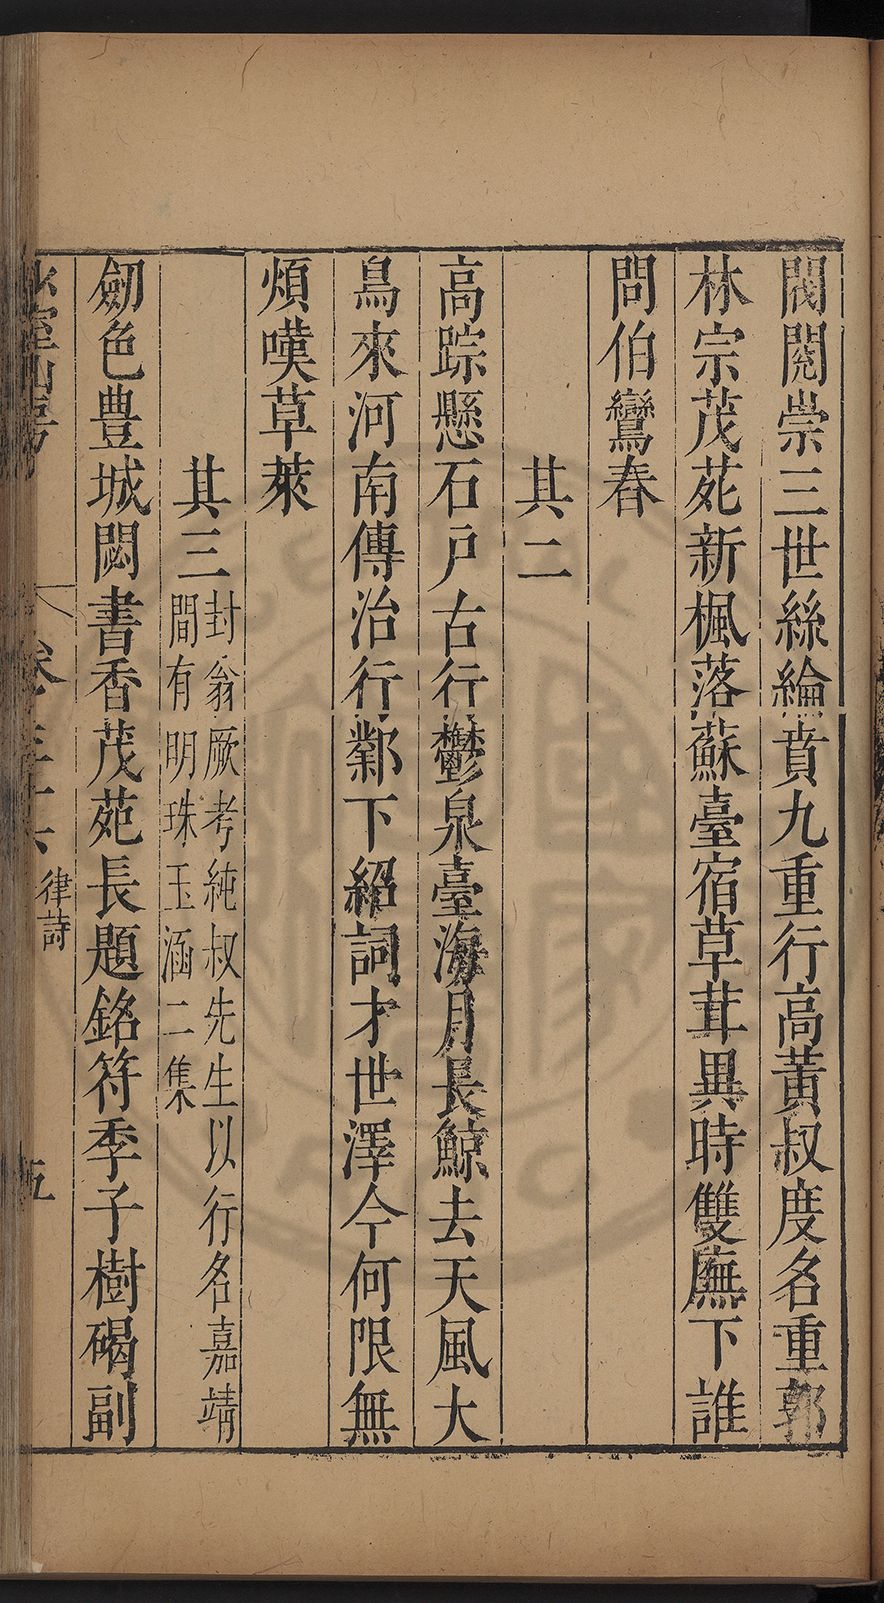 閥閱崇三世絲綸賁九重行高黃叔度名重郭
林宗茂苑新楓落蘇臺宿草茸異時雙廡下誰
問伯鸞春
其二
高踪懸石戶古行鬱泉臺海月長鯨去天風大
鳥來河南傳治行鄴下紹詞才世澤今何限無
煩嘆草萊
其三
封翁厥考純叔先生以行名嘉靖
間有明珠玉涵二集
劒色豊城閟書香茂苑長題銘符季子樹碣副
律詩
五